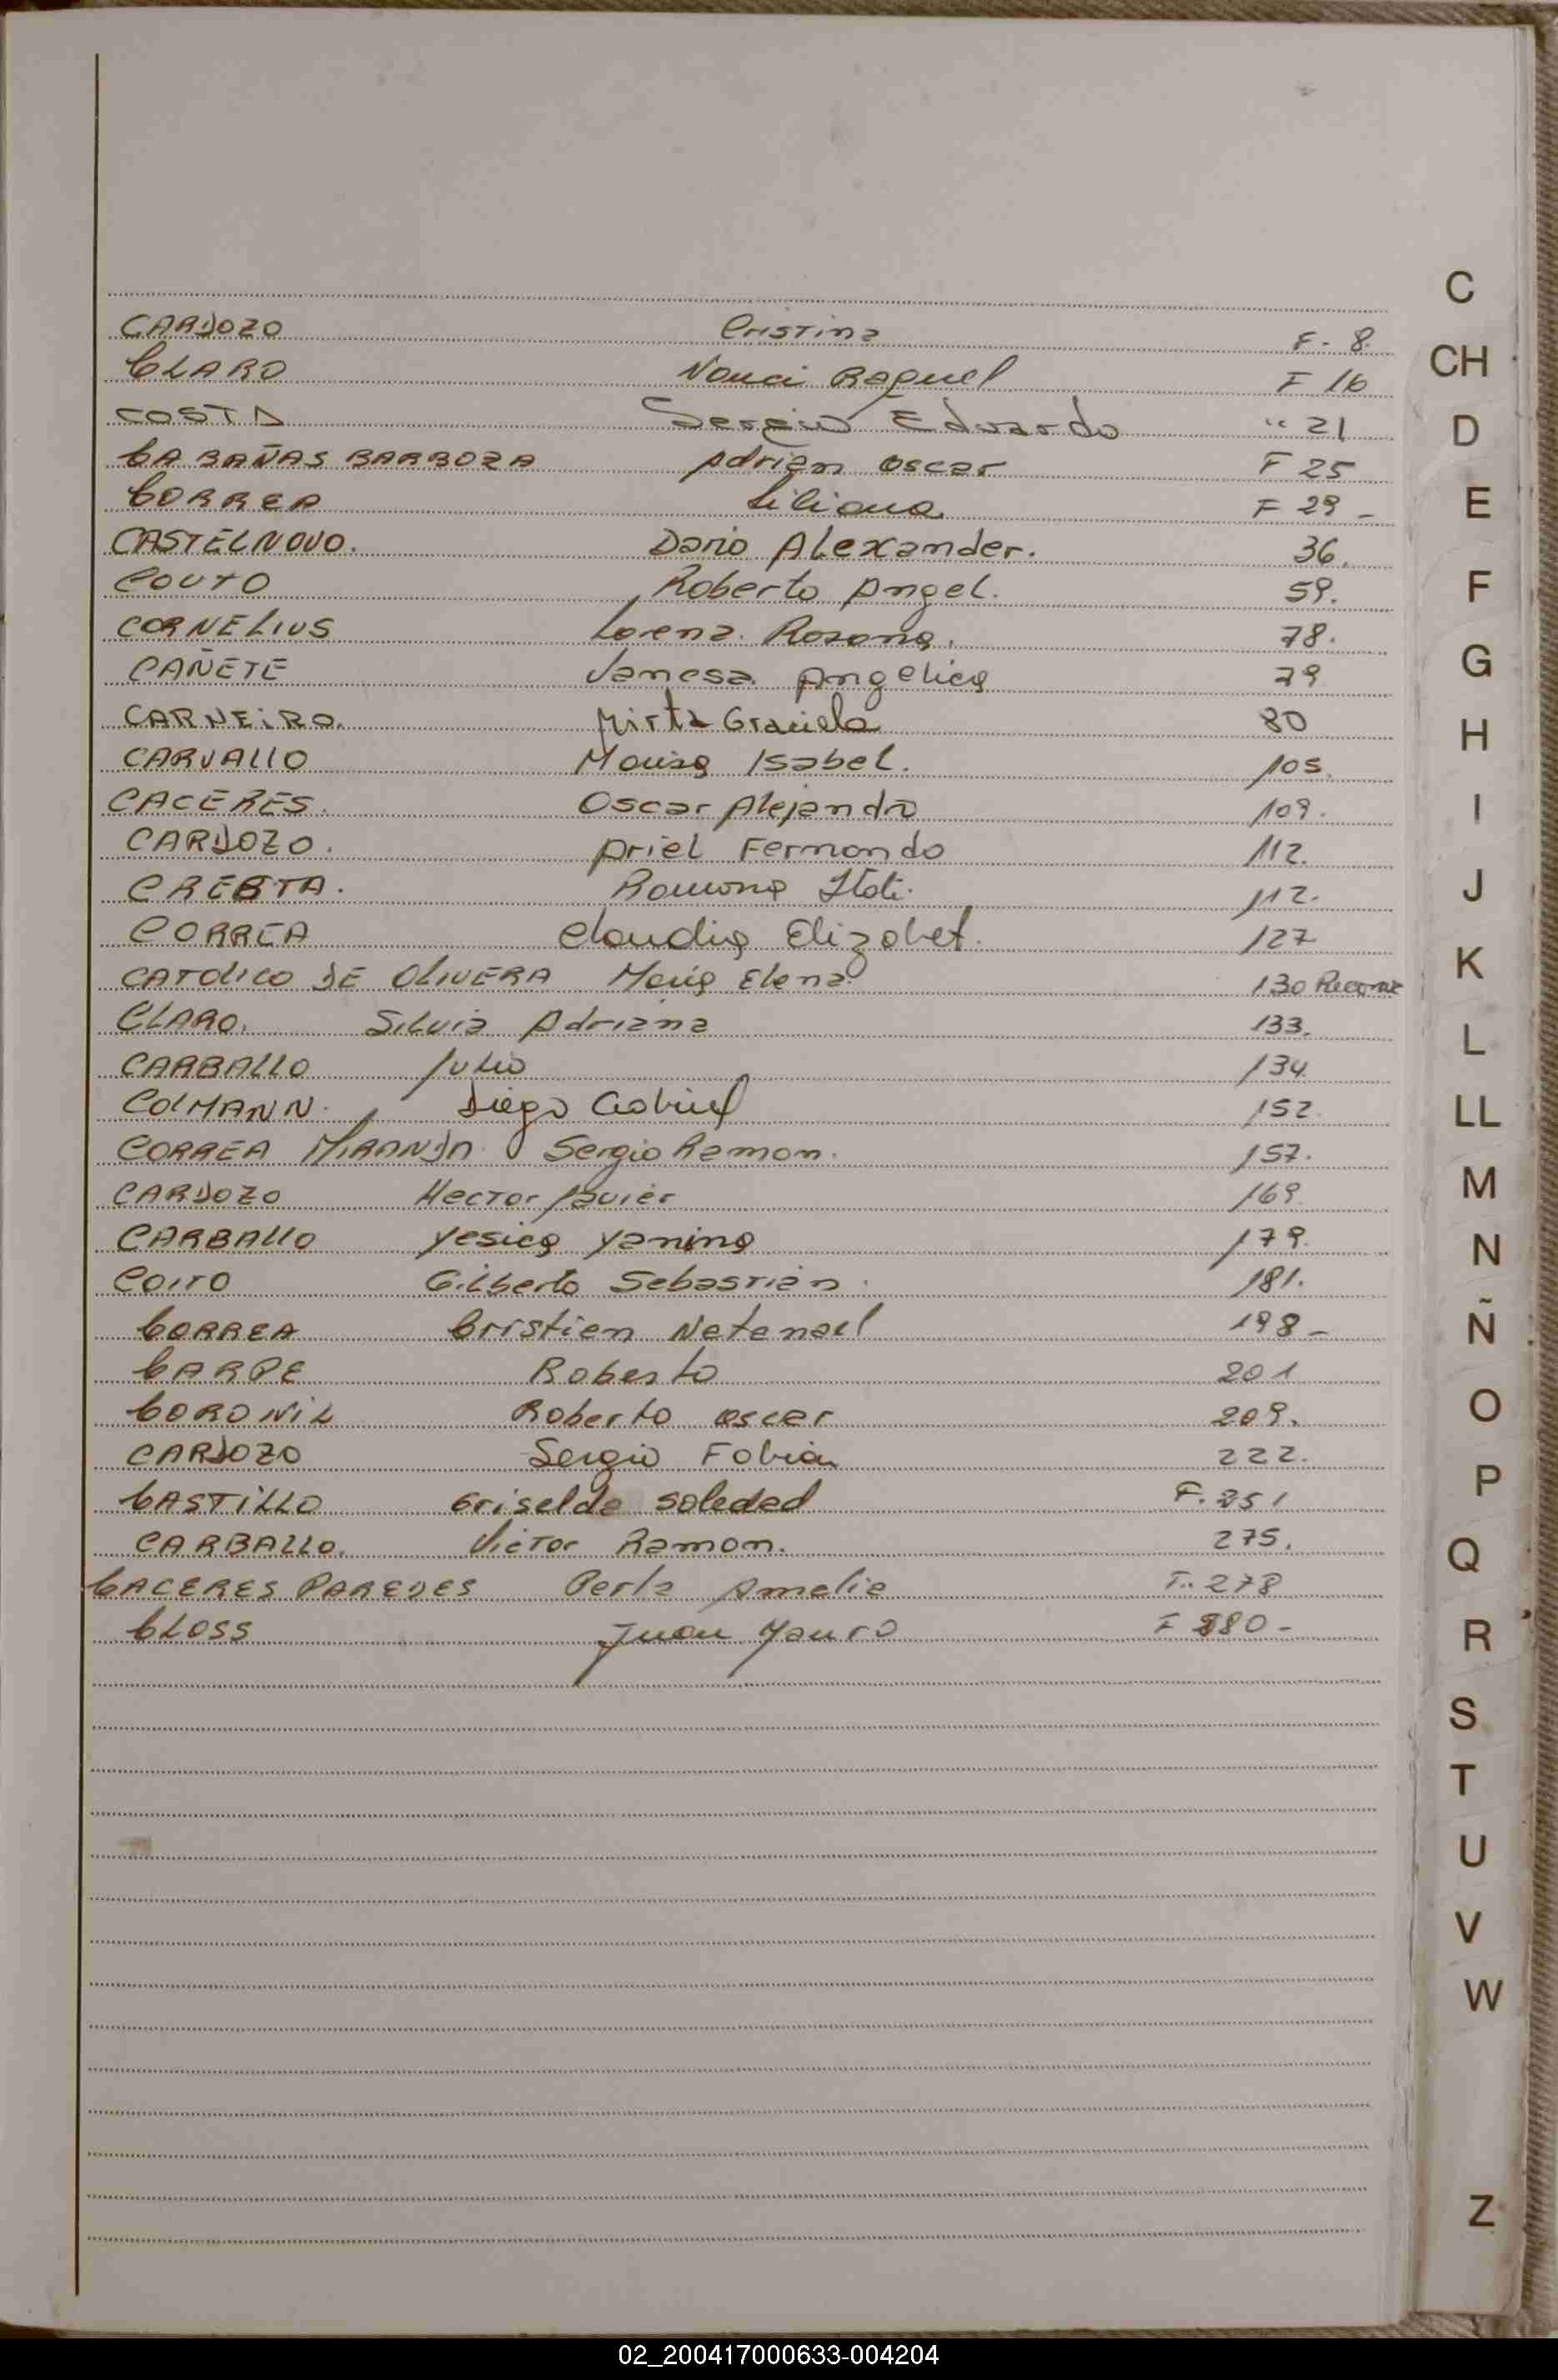 CARDOZO Cristina F. 8.
CLARO Nanci Raquel F 16
COSTA Sergio Eduardo " 21
CABAÑAS BARBOZA Adrian Oscar F 25
CORREA Liliana F 29 -
CASTELNOVO. Dario Alexander. 36.
COUTO Roberto Angel. 59.
CORNELIUS Lorena Rosana. 78.
CAÑETE Vanesa Angelica 79
CARNEIRO. Mirta Graciela 80
CARVALLO Maria Isabel. 105.
CACERES. Oscar Alejandro 109.
CARDOZO. Ariel Fernando 112.
Ramona Itati. 112.
CORREA Claudia Elizabet. 127
CATOLICO DE OLIVERA Maria Elena 130
CLARO. Silvia Adriana 133.
CARBALLO Julio 134
COLMANN. Diego Gabriel 152.
CORREA MIRANDA Sergio Ramon. 157.
CARDOZO Hector Javier 169.
CARBALLO Yesica Yanina 179.
COITO Gilberto Sebastian. 181.
CORREA Cristian Natanael 198 -
CARPE Roberto 201
CORONIL Roberto Oscar 209.
CARDOZO Sergio Fabian 222.
CASTILLO Griselda Soledad F. 251
CARBALLO. Victor Ramon. 275.
CACERES PAREDES Perla Amalia F. 278
CLOSS Juan Mauro F 280 -
C
CH
D
E
F
G
H
I
J
K
L
LL
M
N
Ñ
O
P
Q
R
S
T
U
V
W
Z
02_200417000633-004204